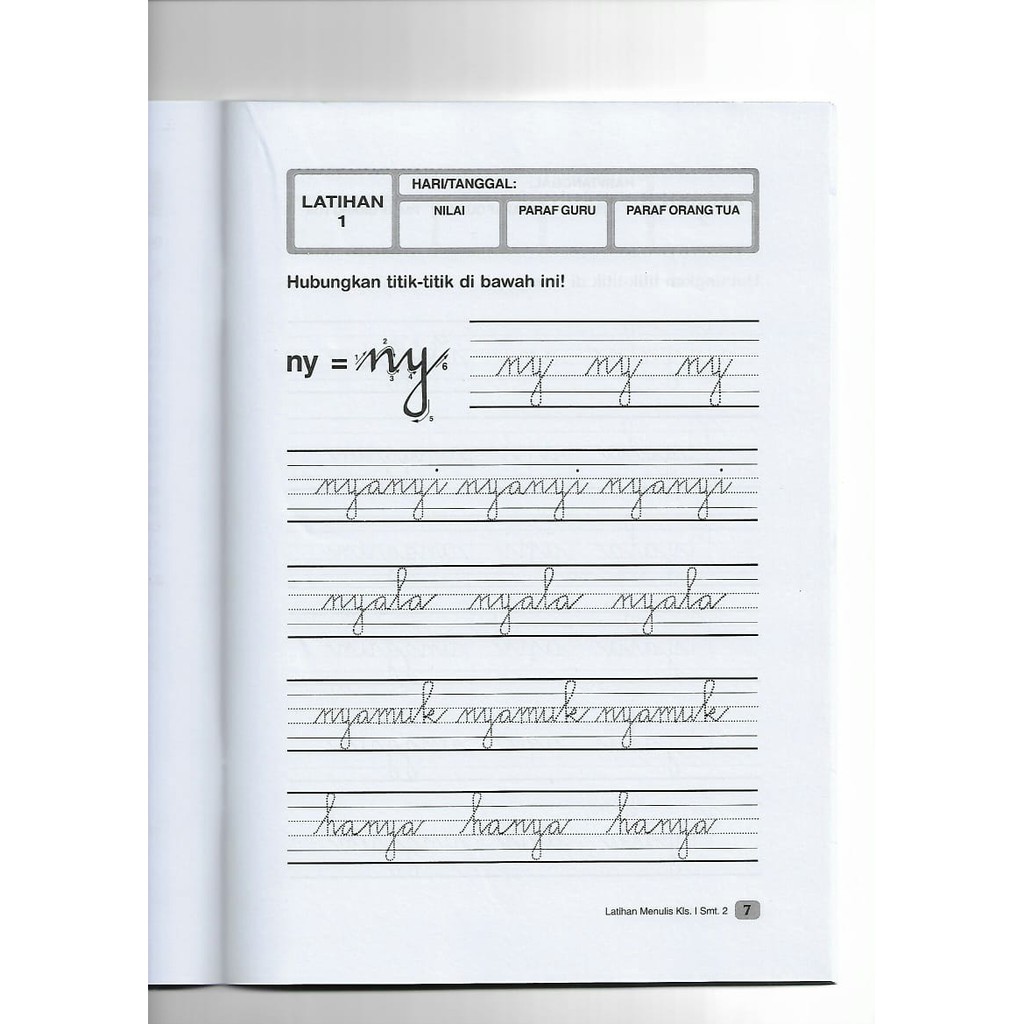 LATIHAN
1
HARI/TANGGAL:
NILAI PARAF GURU PARAF ORANG TUA
Hubungkan titik-titik di bawah ini!
ny = 1 2 3 4 5 6 ny ny ny ny
nyanyi nyanyi nyanyi
nyala nyala nyala
nyamuk nyamuk nyamuk
hanya hanya hanya
Latihan Menulis Kls. I Smt. 2 7